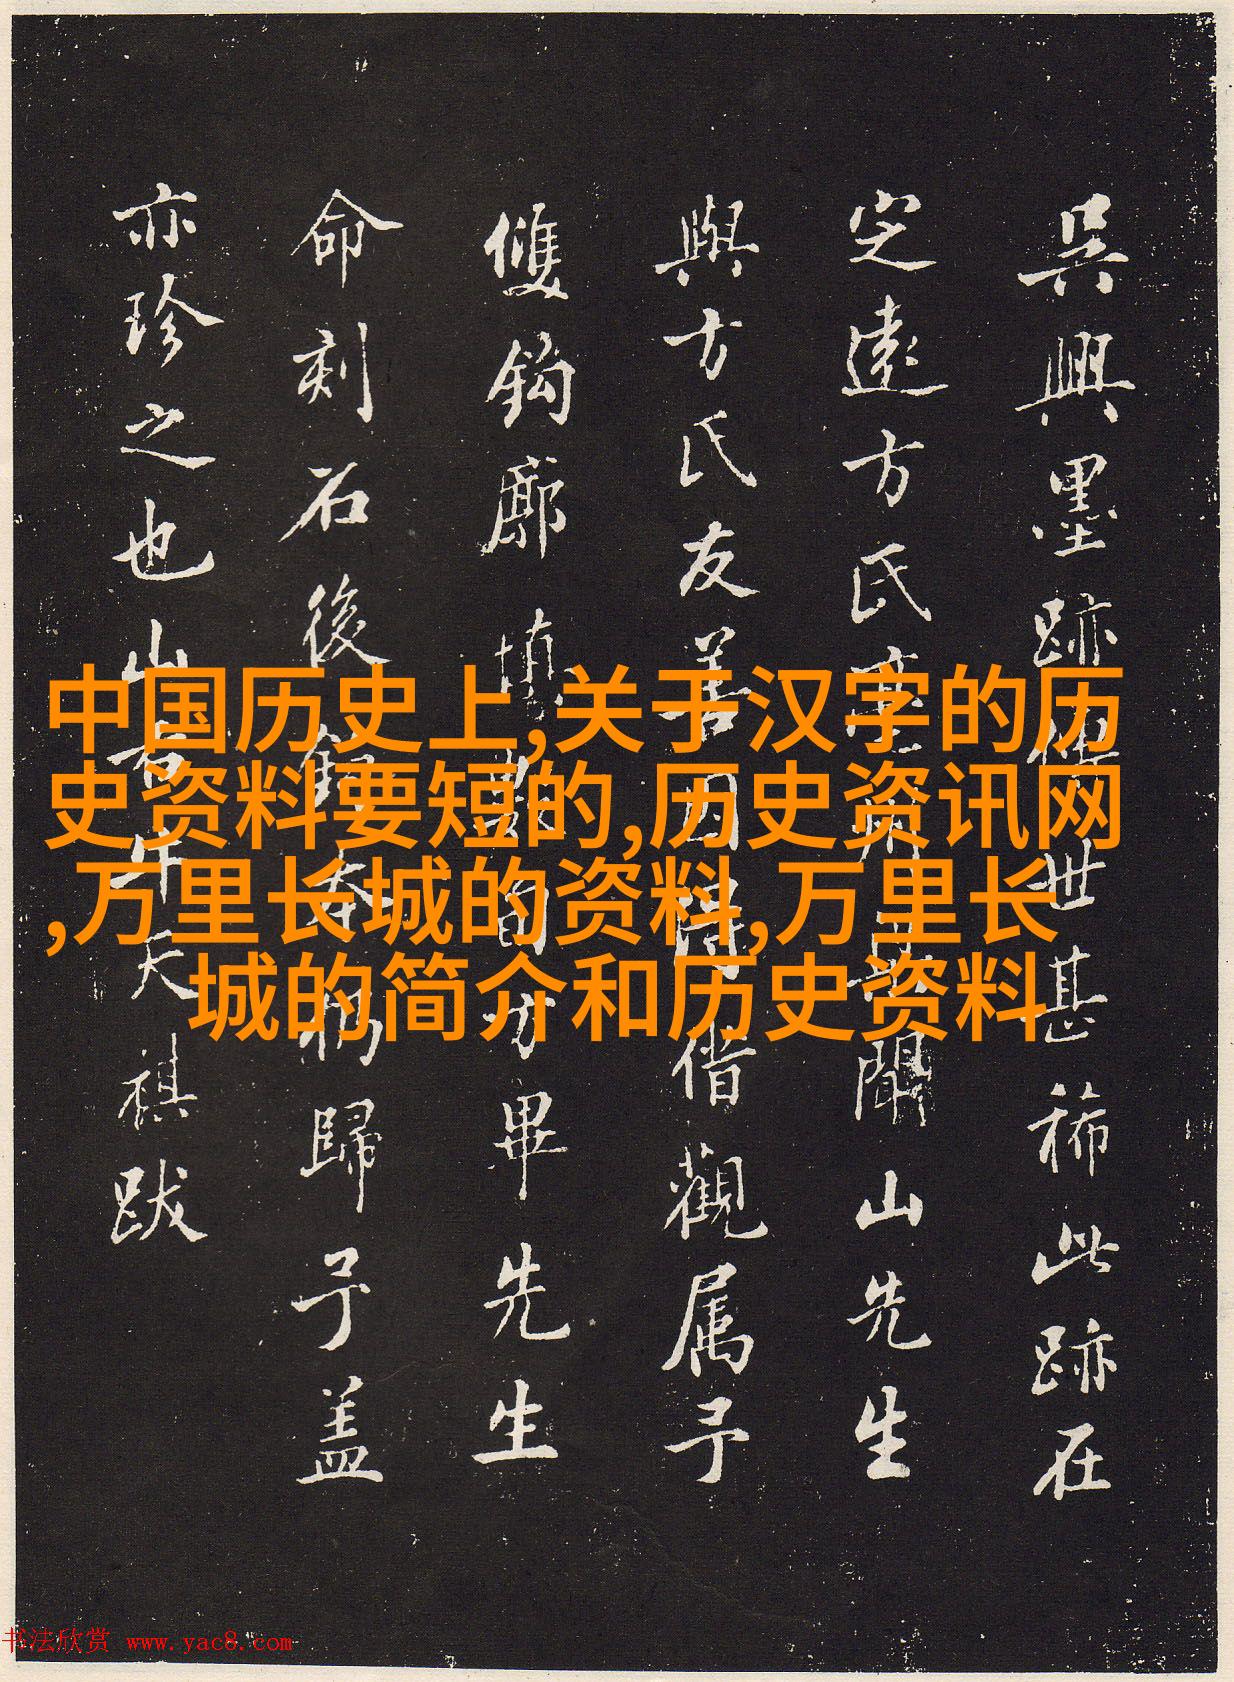 中国历史上,关于汉字的历
史资料要短的,历史资讯网
,万里长城的资料,万里长
城的简介和历史资料
吳興墨跡傳世甚稀此跡在
定遠方氏聞山先生
與方氏友善因得借觀屬予
雙鈎廓填畢先生
命刻石後歸予蓋
亦珍之也山右牛天祺跋
书法欣赏 www.yac8.com